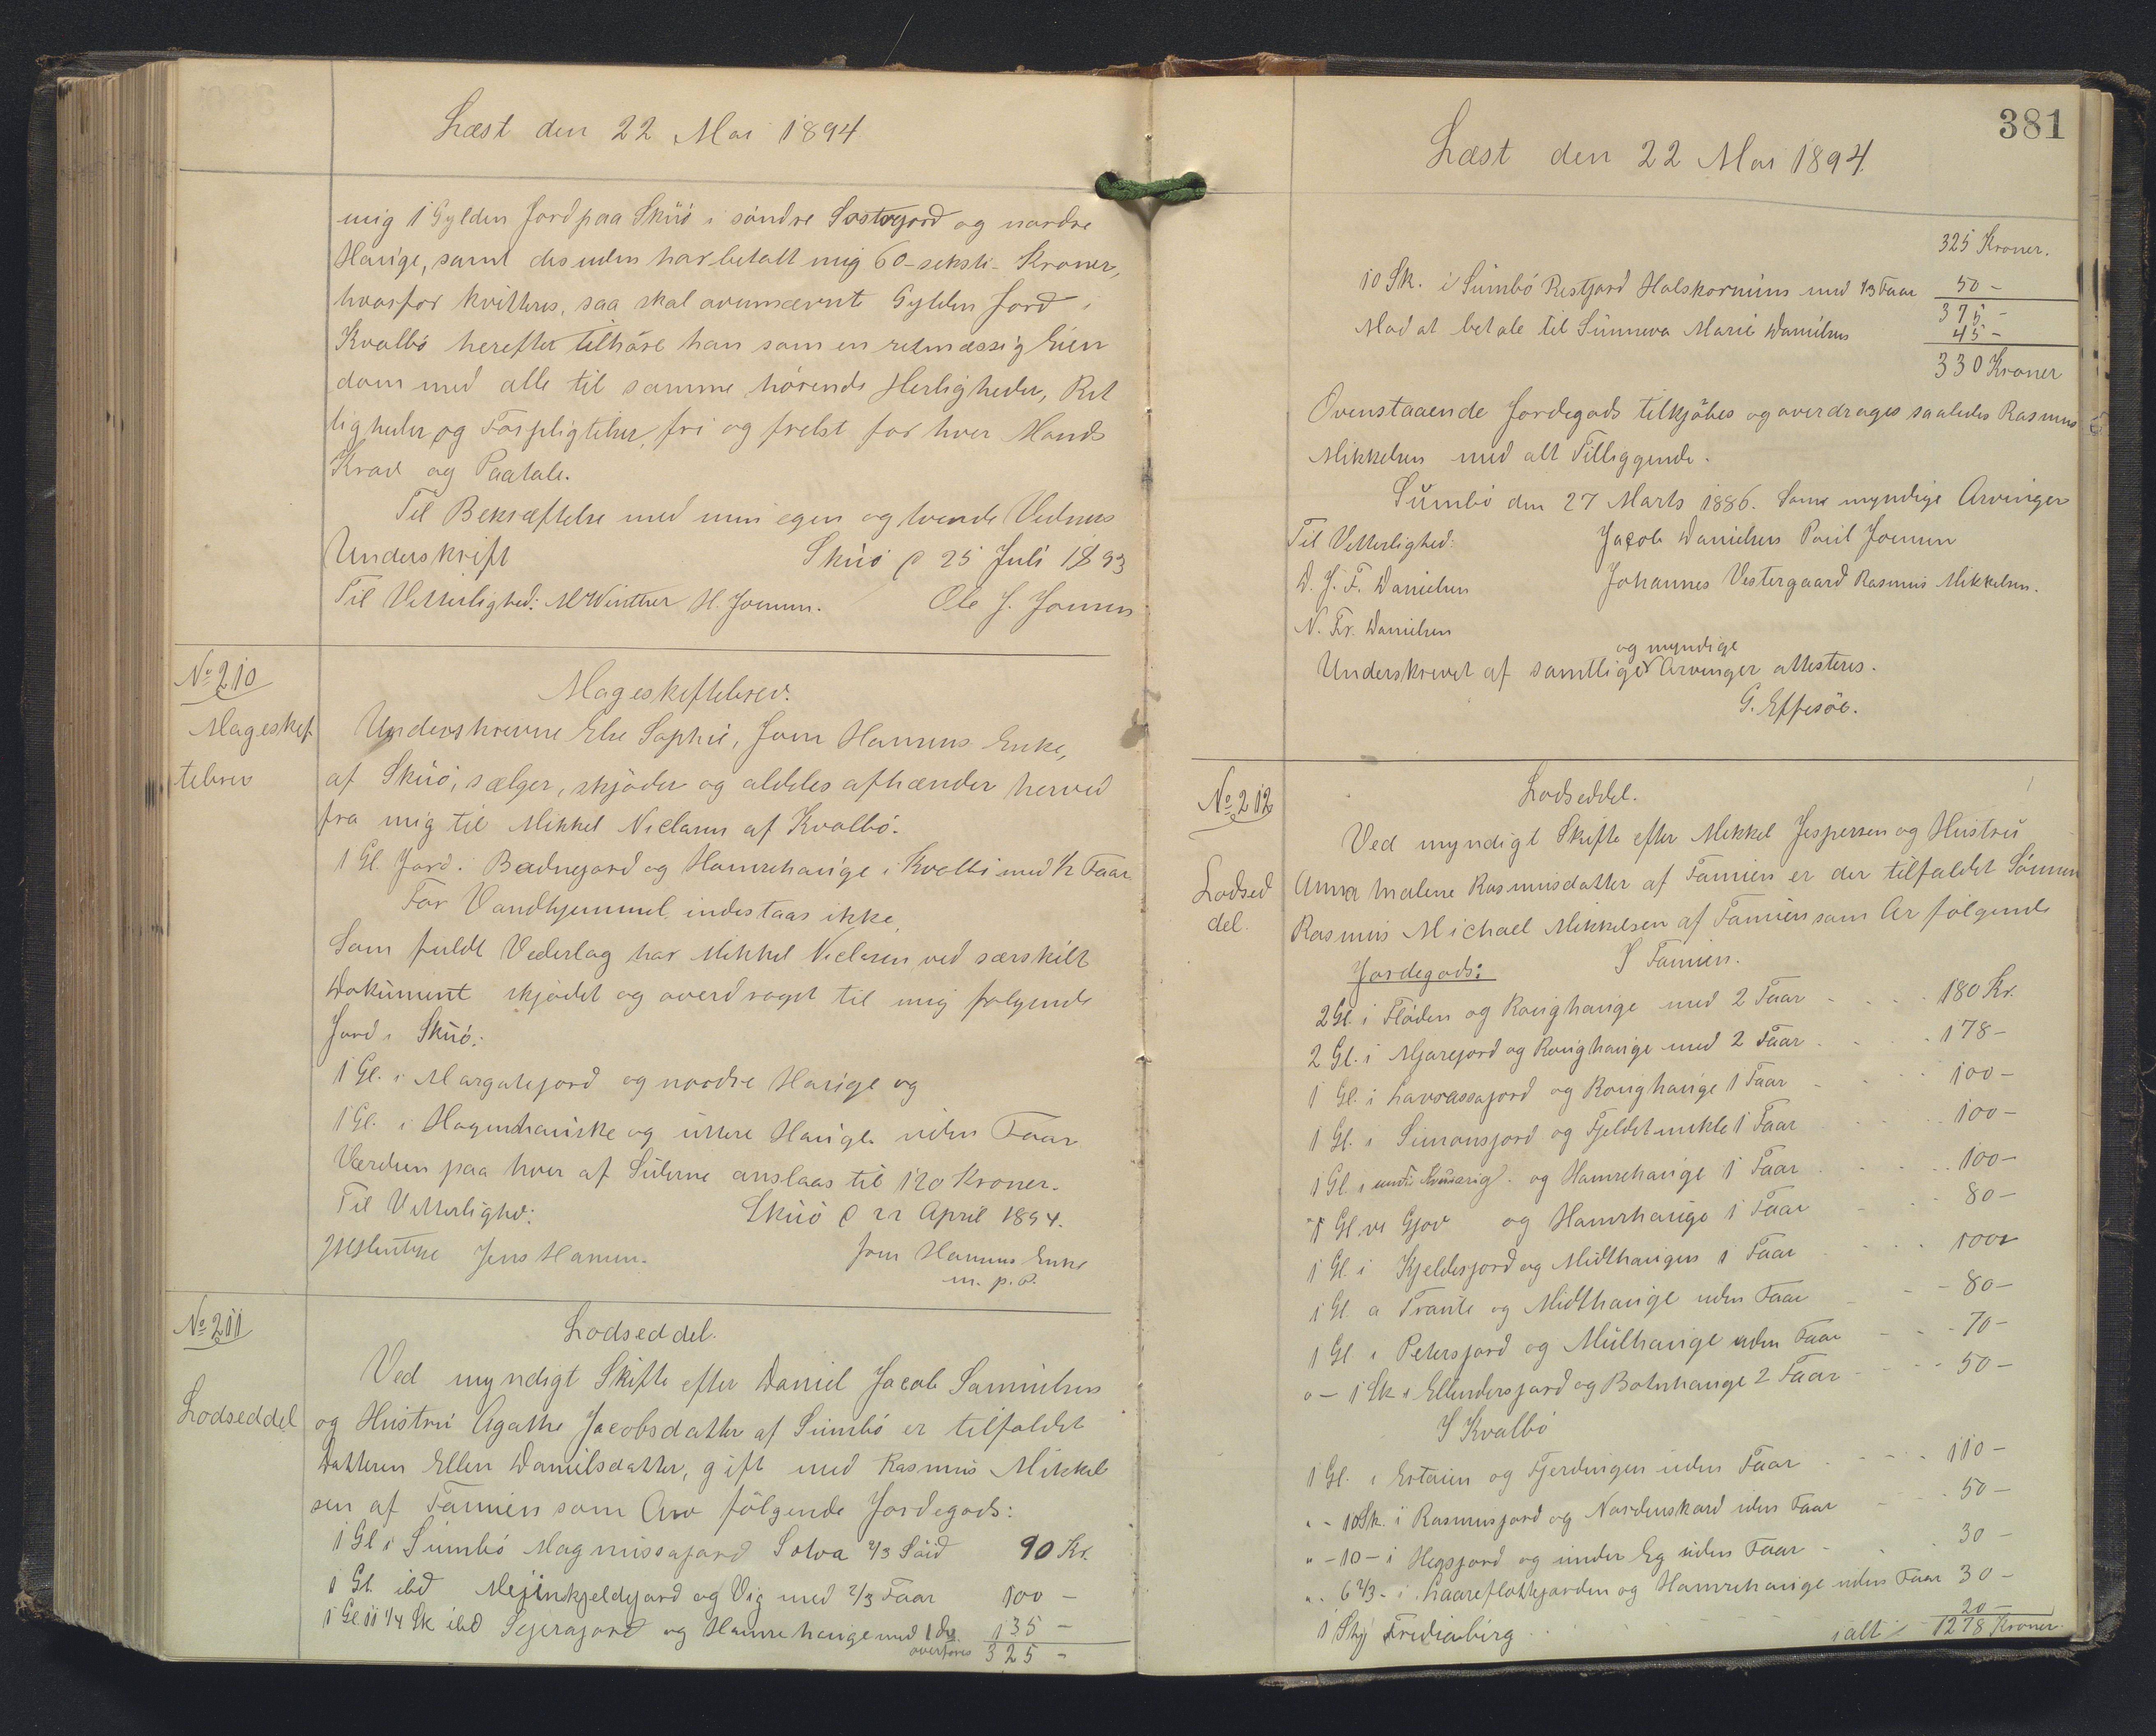 Læst den 22 Mai 1894
mig 1 Gylden Jord paa Skúö i söndre Sostrgord og nordre
Haúge, samt desuden har betalt mig 60 - seksti - Kroner,
hvorfor kvitteres, saa skal ovennævnt Gylden Jord i
Kvalbö herefter tilhöre ham som en retmæssig Eien
dom med alle til samme hörende Herligheder, Ret
tigheder og Forpligtelser, fri og frelst for hver Mands
Krav og Paatale.
Til Bekræftelse med min egen og tvende Vidners
Underskrift Skúö p 25 Juli 1893
Til Vitterlighed: M Winther H. Joensen. Ole J. Joensen
No 210
Mageskif
tebrev
Mageskiftebrev.
Underskrevne Else Sophie, Joen Hansens Enke,
af Skúö, sælger, skjöder og aldeles afhænder herved
fra mig til Mikkel Niclasen af Kvalbö.
1 Gl. Jord i Bødnejord og Hamrehaúge i Kvalbö med ½ Faar
For Vandhjemmel indestaas ikke,
Som fuldt Vederlag har Mikkel Niclasen ved særskilt
Dokúment skjödet og overdraget til mig følgende
Jord i Skúö:
1 Gl. i Margatejord og nordre Haúge og
1 Gl. i Hagenshaúske og úttere Haúge uden Faar
Værdien paa hver af Siderne anslaas til 120 Kroner.
Til Vitterlighed: Skúö p 22 April 1894.
Jens Hansen. Joen Hansens Enke
m. p. P.
No 211
Lodseddel
Lodseddel.
Ved myndigt Skifte efter Daniel Jacob Samúelsen
og Hústrú Agathe Jacobsdatter af Súmbö er tilfaldet
Datteren Ellen Danielsdatter, gift med Rasmús Mikkel
sen af Famien som Arv fölgende Jordegods:
1 Gl i Súmbö Magnússajord Solva 2/3 Söid 90 Kr.
1 Gl. ibd Mejinkjeldejord og Vig med 2/3 Faar 100 -
1 Gl 11 1/4 Sk ibd Sejerajord og Hamrehaúge med 1 Do. 135 -
overføres 325 -
381
Læst den 22 Mai 1894.
325 Kroner.
10 Sk. i Súmbö Præstjord Halskornúms med 1/3 Faar 50 -
375 -
Mod at betale til Súnneva Marie Danielsen 45 -
330 Kroner
Ovenstaaende Jordegods tilkjöbes og overdrages saaledes Rasmus
Mikkelsen med alt Tilliggende.
Súmbö den 27 Marts 1886. Som myndige Arvinger
Til Vitterlighed: Jacob Danielsen Poúl Joensen
D. J. F. Danielsen Johannes Vestergaard Rasmús Mikkelsen.
N. Fr. Danielsen
og myndige
Underskrevet af samtlige Arvinger attesteres.
G. Effersöe.
No 212
Lodsed
del.
Lodseddel.
Ved myndigt Skifte efter Mikkel Jespersen og Hústrú
Anna Malene Rasmúsdatter af Famien er der tilfaldet Sönnen
Rasmús Michael Mikkelsen af Famien som Arv følgende
Jordegods: I Famien.
2 Gl. i Flöden og Roúghaúge med 2 Faar 180 Kr.
2 Gl. i Mjarejord og Roúghaúge med 2 Faar 178 -
1 Gl. i Lavrassajord og Roúghaúge 1 Faar 100 -
1 Gl. i Simonsjord og Fjeldet mikle 1 Faar 100 -
1 Gl. i og Hamrehaúge 1 Faar 100 -
1 Gl. vi Gjov og Hamrhaúge 1 Faar 80 -
1 Gl. i Kjeldesjord og Midthaúgen 1 Faar 100 -
1 Gl. a Traúte og Midthaúge uden Faar 80 -
1 Gl. i Petersjord og Múlhaúge uden Faar 70 -
o - 1 Sk i Ellendersjord og Botnhaúge 2 Faar 50 -
I Kvalbö
1 Gl. i og Fjerdingen uden Faar 110 -
" - 10 Sk. i Rasmúsjord og Nordenskard uden Faar 50 -
" - 10 - i Hegsjord og únder Eg uden Faar 30 -
" - 6 2/3 - i Haareflottejorden og Hamrehaúge uden Faar 30 -
1 Stj Frediabirg 20 -
ialt 1278 Kroner.